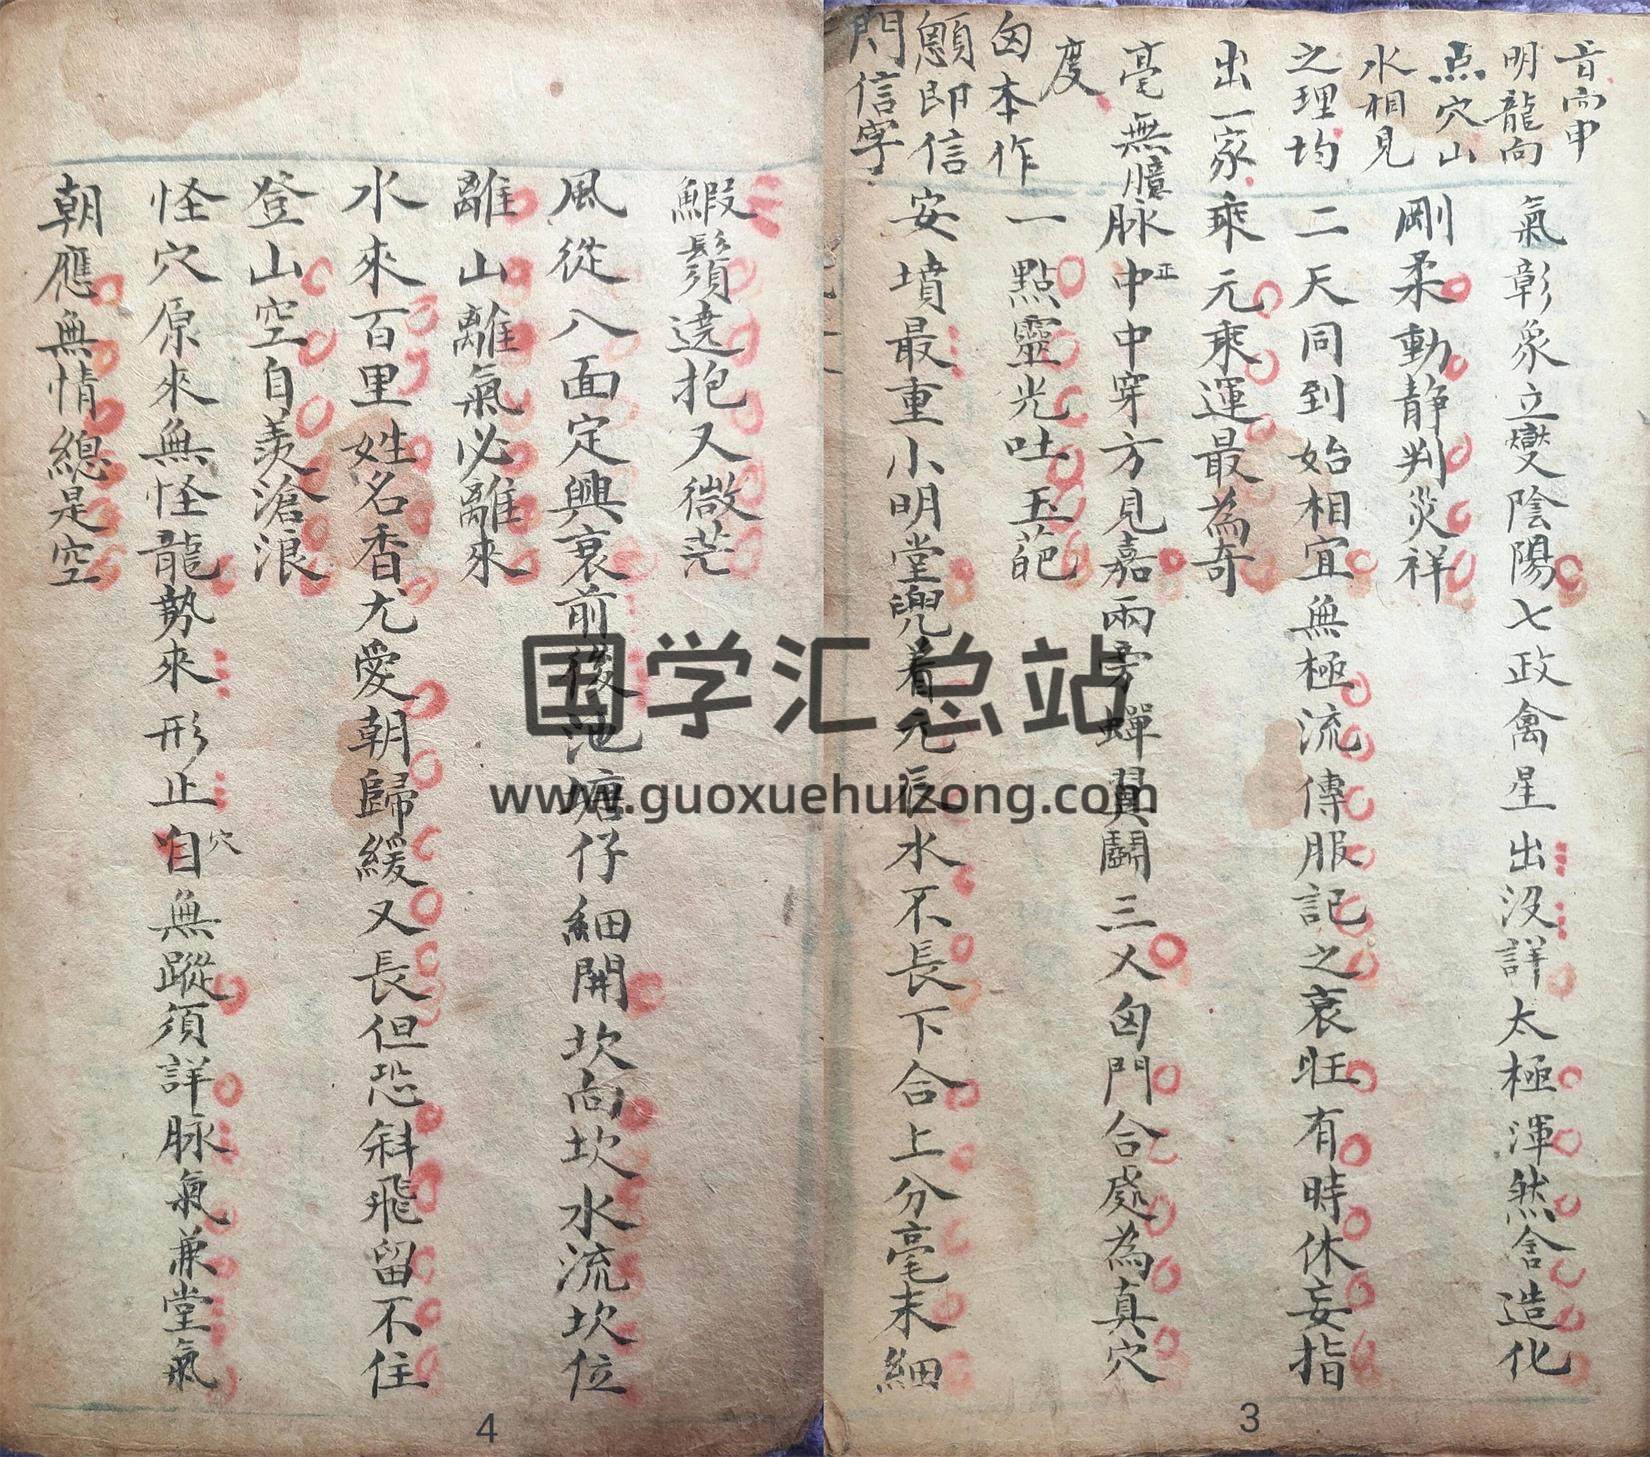 明龍向
点穴山
水相見
之理均
出一家
毫無
度
匈本作
顖即信
門信字
氣彰象立爕陰陽七政禽星出沒詳太極渾然含造化
剛柔動静判災祥
二天同到始相宜無極流傳服記之衰旺有時休妄指
乘元乘運最為奇
脉正中中穿方見嘉兩旁蟬翼鬪三乂匈門合處為真穴
一點靈光吐玉葩
安墳最重小明堂兜着元辰水不長下合上分毫末細
3
鰕鬚遶抱又微茫
風從八面定興衰前後池塘仔細開坎向坎水流坎位
離山離氣必離來
水來百里姓名香尤愛朝歸緩又長但恐斜飛留不住
登山空自羨滄浪
怪穴原來無怪龍勢來形止自穴無蹤須詳脉氣兼堂氣
朝應無情總是空
4
国学汇总站
www.guoxuehuizong.com